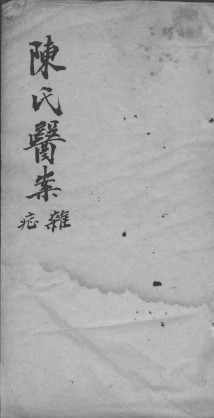 陳氏醫案
雜症